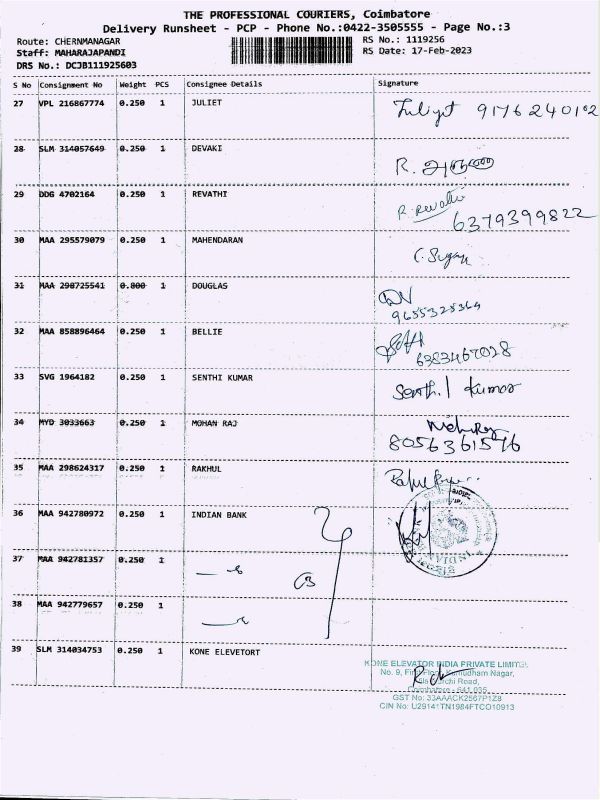 THE PROFESSIONAL COURIERS, Coimbatore
Delivery Runsheet - PCP - Phone No.:0422-3505555 - Page No.:3
Route: CHERNMANAGAR RS No.: 1119256
Staff: MAHARAJAPANDI RS Date: 17-Feb-2023
DRS No.: DCJB111925603
S No Consignment No Weight PCS Consignee Details Signature
27 VPL 216867774 0.250 1 JULIET Juliyt 9176240102
28 SLM 314057649 0.250 1 DEVAKI R.
29 DDG 4702164 0.250 1 REVATHI R. Revathi
6379399822
30 MAA 295579079 0.250 1 MAHENDARAN
31 MAA 298725541 0.800 1 DOUGLAS
9655325364
32 MAA 858896464 0.250 1 BELLIE
6383467028
33 SVG 1964182 0.250 1 SENTHI KUMAR Senthil Kumar
34 MYD 3033663 0.250 1 MOHAN RAJ
8056361546
35 MAA 298624317 0.250 1 RAKHUL
36 MAA 942780972 0.250 1 INDIAN BANK
37 MAA 942781357 0.250 1
38 MAA 942779657 0.250 1
39 SLM 314034753 0.250 1 KONE ELEVETORT
KONE ELEVATOR INDIA PRIVATE LIMITED
No. 9, First Floor, Kumudham Nagar,
Road,
Coimbatore - 641 035
GST No: 33AAACK2567P1Z8
CIN No: U29141TN1984FTCO10913